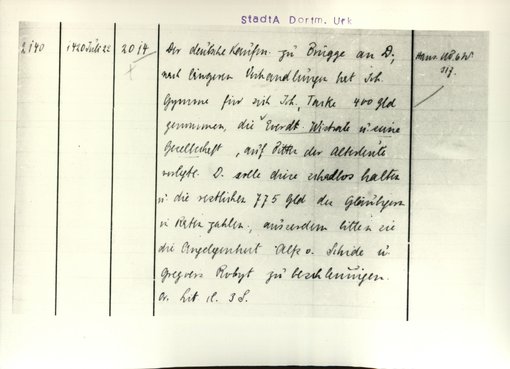 StadtA Dortm. Urk
2140 1420 Juli 22 2014 Der deutsche Kaufm. zu Brügge an D,
nach längeren Verhandlungen hat Joh.
Gymme für sich Joh. Tarke 400 gld
genommen, die Everdt und seine
Gesellschaft, auf Bitten der Alterleute
D. solle diese schadlos halten
u die restlichen 775 Gld den Gläubigern
in Raten zahlen, ausserdem bitten sie
die Angelegenheit Alfs v. Schide u
Gregors Robyt zu beschleunigen.
Or. 3 S.
Hans. UB 6 N